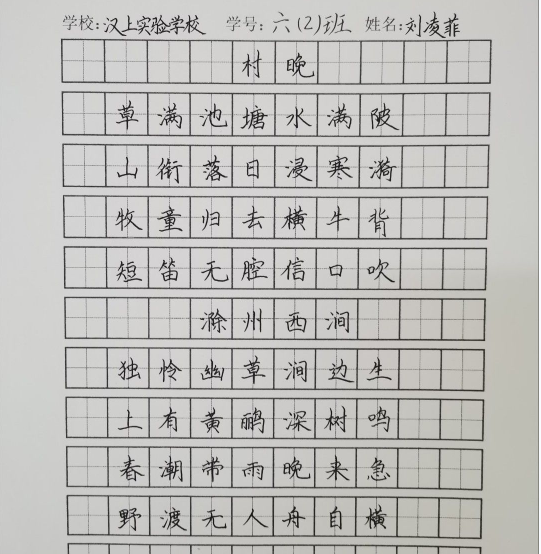 学校:汉上实验学校 学号:六(2)班 姓名:刘凌菲
村晚
草满池塘水满陂
山衔落日浸寒漪
牧童归去横牛背
短笛无腔信口吹
滁州西涧
独怜幽草涧边生
上有黄鹂深树鸣
春潮带雨晚来急
野渡无人舟自横